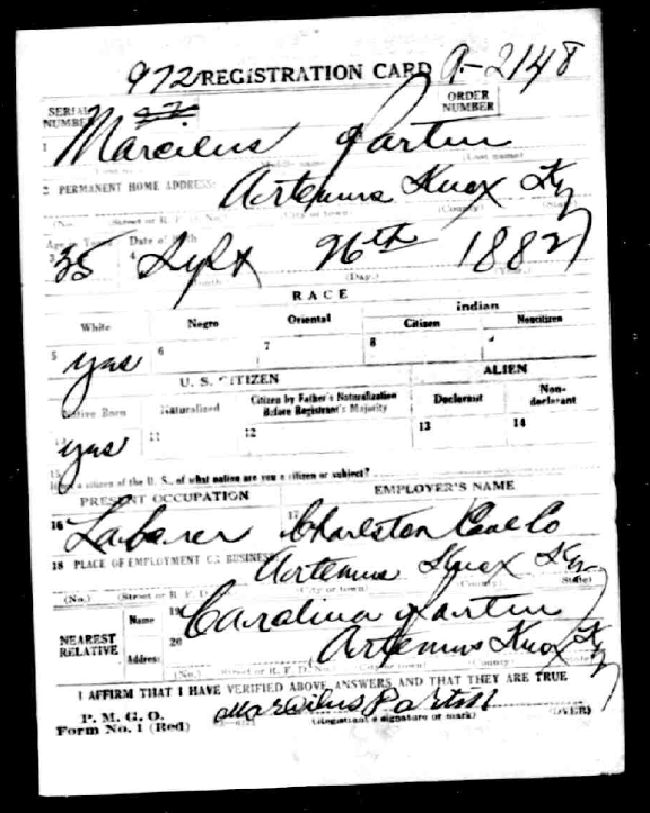 972 REGISTRATION CARD A-2148
SERIAL NUMBER ORDER NUMBER
1 Marcilus Partin
(Last name)
2 PERMANENT HOME ADDRESS:
Artemus Knox Ky
(No.) (Street or R. F. D. No.) (City or town) (County) (State)
Age in Years Date of Birth
35 Sept 26th 1882
(Month) (Day.) (Year.)
RACE
White Negro Oriental Indian
Citizen Noncitizen
5 yas 6 7 8
U. S. CITIZEN ALIEN
Native Born Naturalized Citizen by Father's Naturalization Before Registrant's Majority Declarant Non-declarant
yas 11 12 13 14
15 a citizen of the U. S., of what nation are you a citizen or subject?
PRESENT OCCUPATION EMPLOYER'S NAME
16 Labarer 17 Charlston Coal Co
18 PLACE OF EMPLOYMENT OR BUSINESS:
Artemus Knox Ky
(No.) (Street or R. F. D. (City or town) (County) State)
NEAREST RELATIVE
Name 19 Carolina Partin
Address 20 Artemus Knox Ky
(No.) Street or R. F. D. No.) (City or town) (County)
I AFFIRM THAT I HAVE VERIFIED ABOVE ANSWERS AND THAT THEY ARE TRUE
P. M. G. O.
Form No. 1 (Red) Marcilus Partin
(Registrant's signature or mark) (OVER)